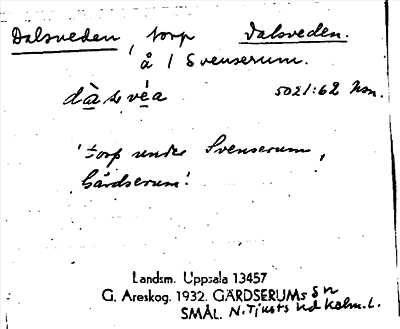 Dalsveden, torp Dalsveden.
å 1 Svenserum.
dàlsvéa 5021:62 Nsn.
'torp under Svenserum,
Gärdserum.'
Landsm. Uppsala 13457
G. Areskog. 1932. GÄRDSERUMs sn
SMÅL. N. Tjusts hd Kalm. l.